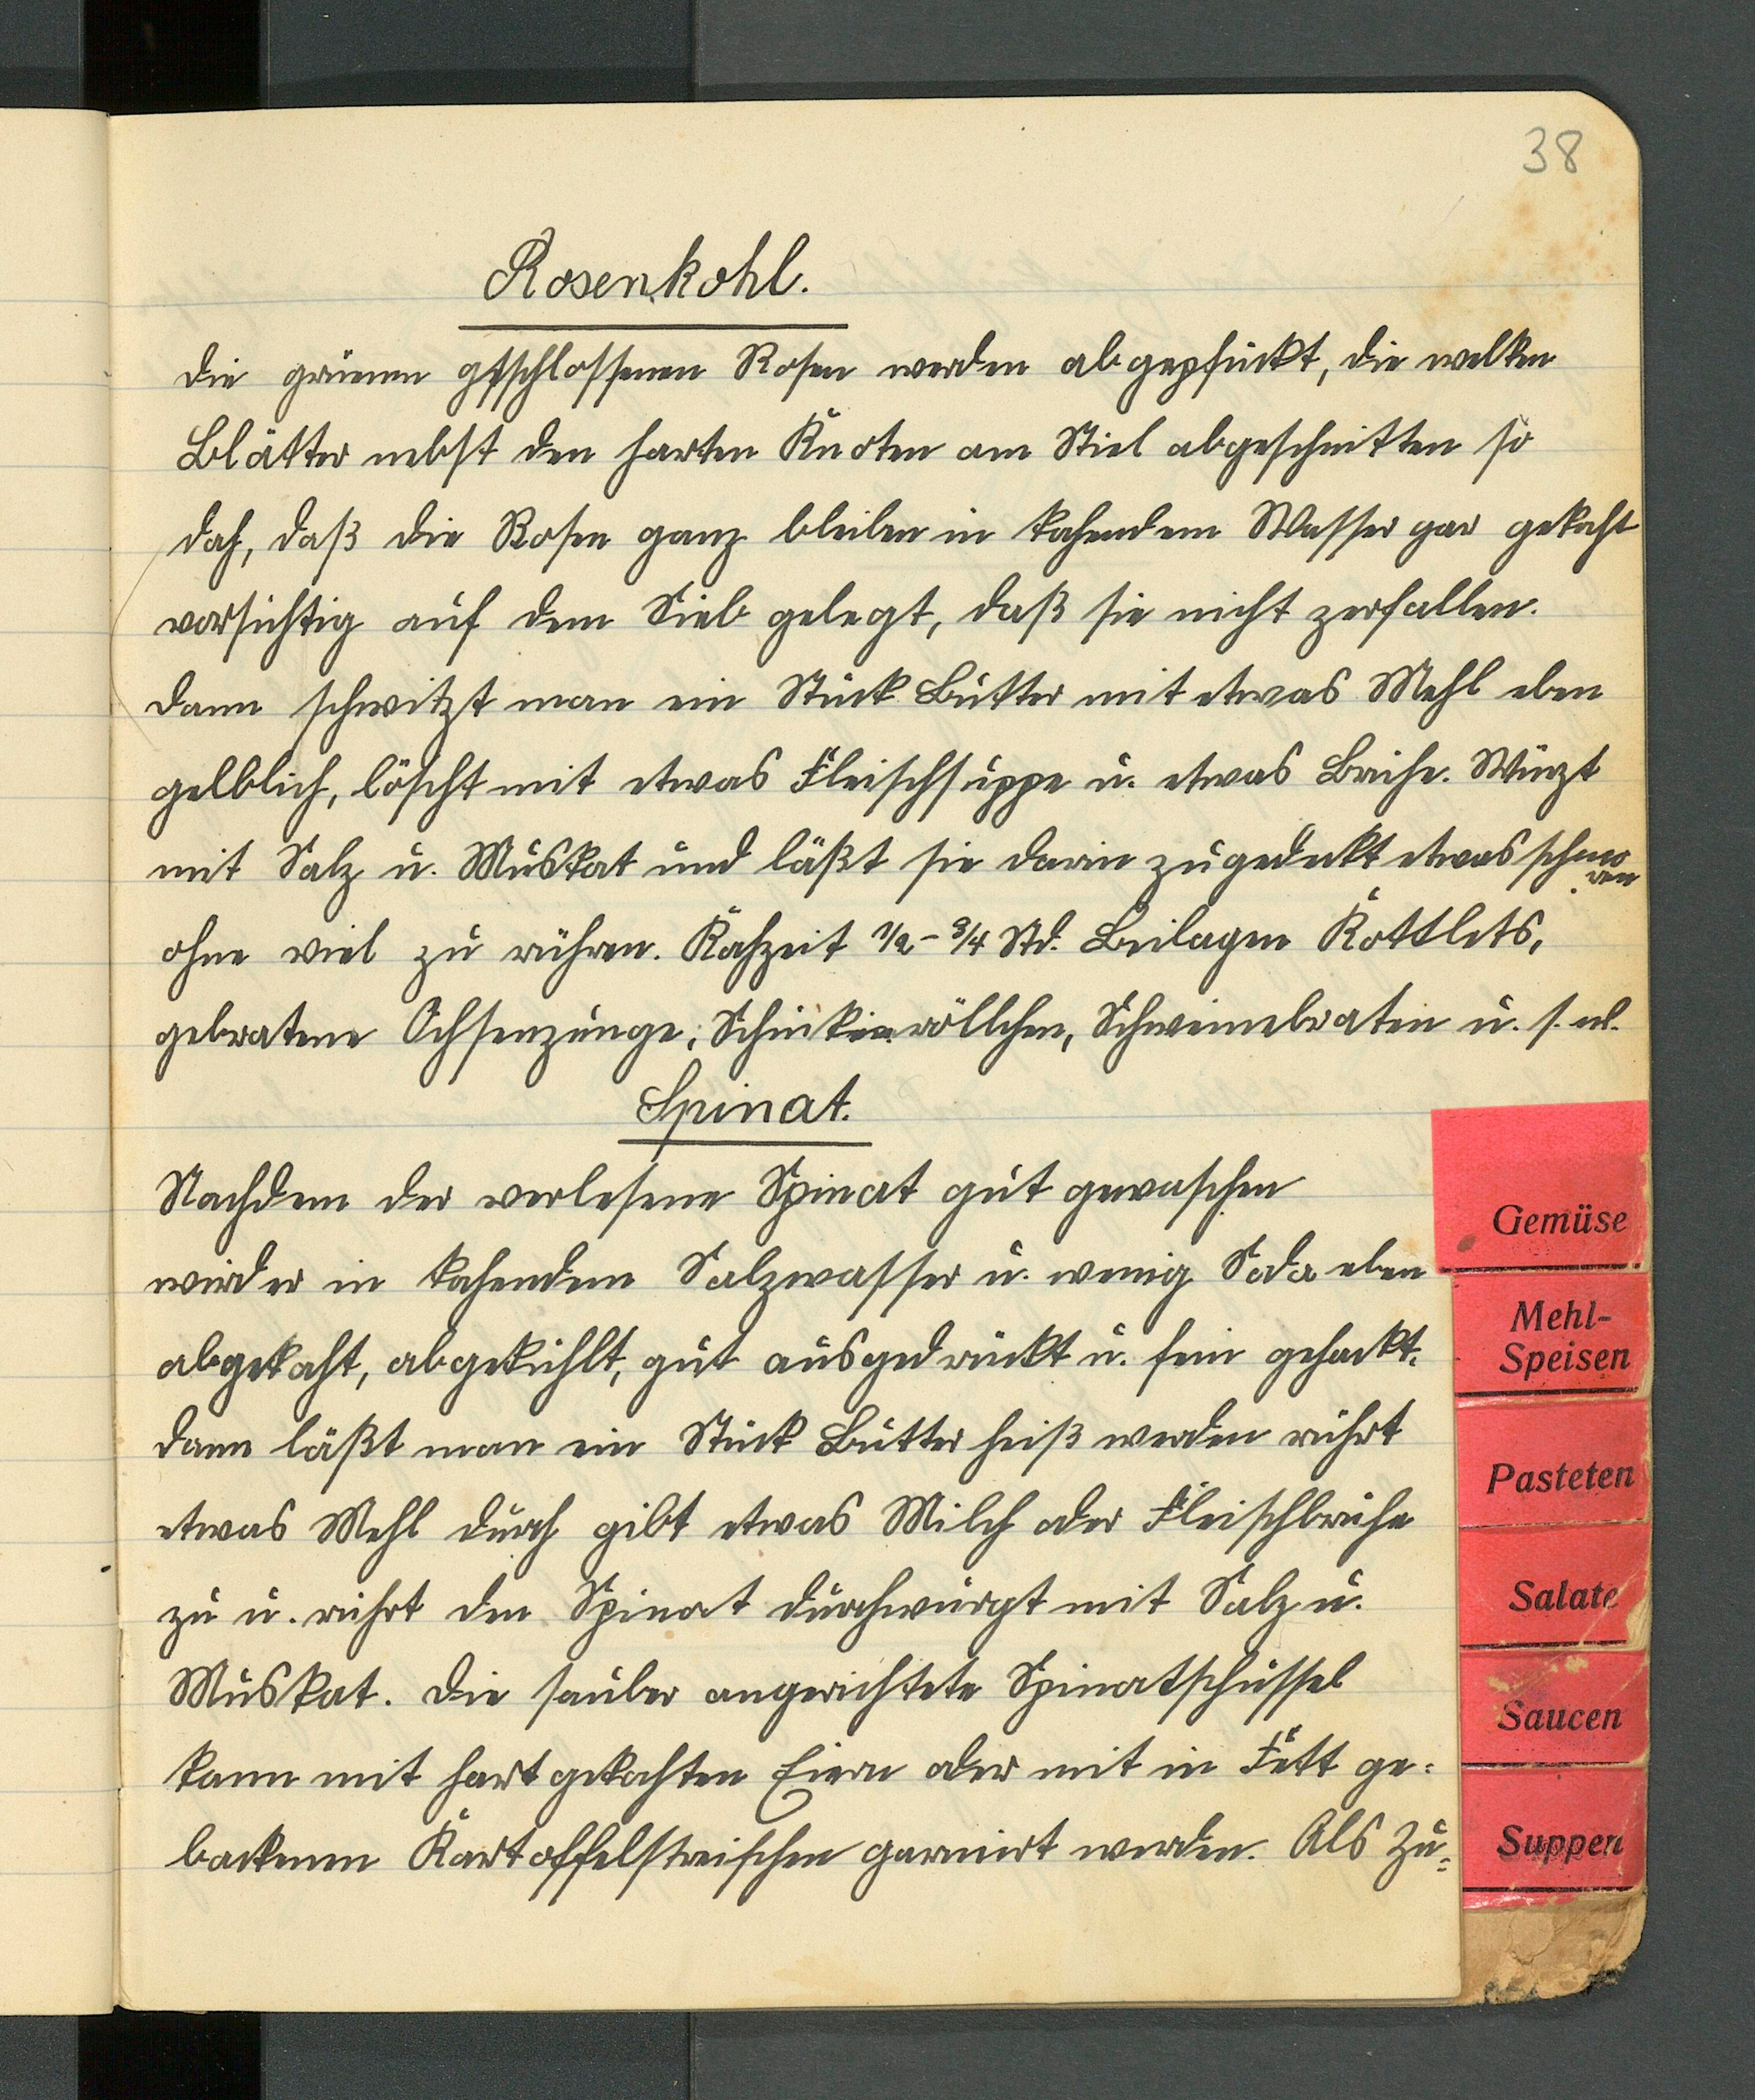 38
Rosenkohl.
Die grünen gschlossenen Rosen werden abgepfückt, die welken
Blätter nebst den harten Knoten am Stiel abgeschnitten so
doch, daß die Rosen ganz bleiben in kochendem Wasser gar gekocht
vorsichtig auf dem Sieb gelegt, daß sie nicht zerfallen.
Dann schwitzt man ein Stück Butter mit etwas Mehl eben
gelblich, löscht mit etwas Fleischsuppe u. etwas Brühe. Würzt
mit Salz u. Muskat und läßt sie darin zugedekt etwas schmo
ren
ohne viel zu rühren. Kochzeit 1/2 - 3/4 Std. Beilagen Kottlets,
gebratene Ochsenzunge, Schinkenröllchen, Schweinebraten u. s. w.
Spinat.
Nachdem der verlesene Spinat gut gewaschen
wird er in kochendem Salzwasser u. wenig Soda eben
abgekocht, abgekühlt, gut ausgedrückt u. fein gehackt.
Dann läßt man ein Stück Butter heiß werden rührt
etwas Mehl durch gibt etwas Milch oder Fleischbrühe
zu u. rührt den Spinat durchwürzt mit Salz u.
Muskat. Die sauber angerichtete Spinatschüssel
kann mit hart gekochten Eiern oder mit in Fett ge-
backenen Kartoffelstreifchen garniert werden. Als Zu-
Gemüse
Mehl-
Speisen
Pasteten
Salate
Saucen
Suppen